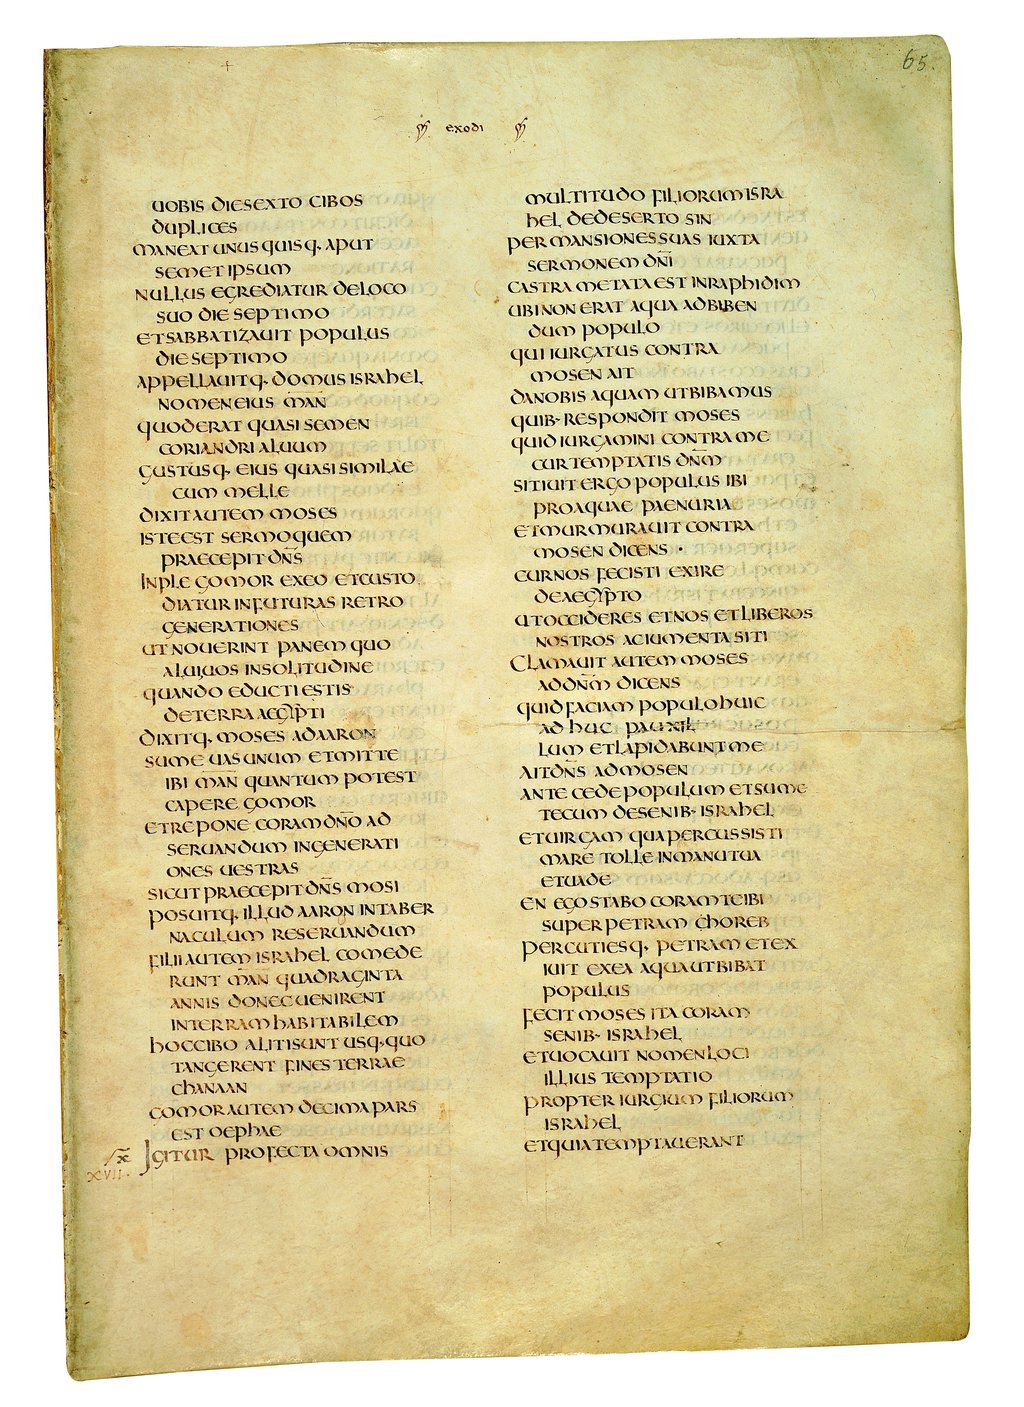 65.
exodi
uobis die sexto cibos
duplices
maneat unusquisq· aput
semet ipsum
nullus egrediatur de loco
suo die septimo
et sabbatizauit populus
die septimo
appellauitq· domus israhel
nomen eius man
quod erat quasi semen
coriandri album
gustusq· eius quasi similae
cum melle
dixit autem moses
iste est sermo quem
praecepit dn̅s
inple gomor ex eo et custo
diatur in futuras retro
generationes
ut nouerint panem quo
alui uos in solitudine
quando educti estis
de terra aegypti
dixitq· moses ad aaron
sume uas unum et mitte
ibi man quantum potest
capere gomor
et repone coram dn̅o ad
seruandum in generati
ones uestras
sicut praecepit dn̅s mosi
posuitq· illud aaron in taber
naculum reseruandum
filii autem israhel comede
runt man quadraginta
annis donec uenirent
in terram habitabilem
hoc cibo aliti sunt usq· quo
tangerent fines terrae
chanaan
gomor autem decima pars
est oephae
XVII· Igitur profecta omnis
multitudo filiorum isra
hel de deserto sin
per mansiones suas iuxta
sermonem dn̅i
castra metata est in raphidim
ubi non erat aqua ad biben
dum populo
qui iurgatus contra
mosen ait
da nobis aquam ut bibamus
quib· respondit moses
quid iurgamini contra me
cur temptatis dn̅m
sitiuit ergo populus ibi
pro aquae paenuria
et murmurauit contra
mosen dicens ·
cur nos fecisti exire
de aegypto
ut occideres et nos et liberos
nostros ac iumenta siti
Clamauit autem moses
ad dn̅m dicens
quid faciam populo huic
ad huc pauxil
lum et lapidabunt me
ait dn̅s ad mosen
ante cede populum et sume
tecum de senib· israhel
et uirgam qua percussisti
mare tolle in manu tua
et uade
en ego stabo coram te ibi
super petram choreb
percutiesq· petram et ex
iuit ex ea aqua ut bibat
populus
fecit moses ita coram
senib· israhel
et uocauit nomen loci
illius temptatio
propter iurgium filiorum
israhel
et quia temptauerant